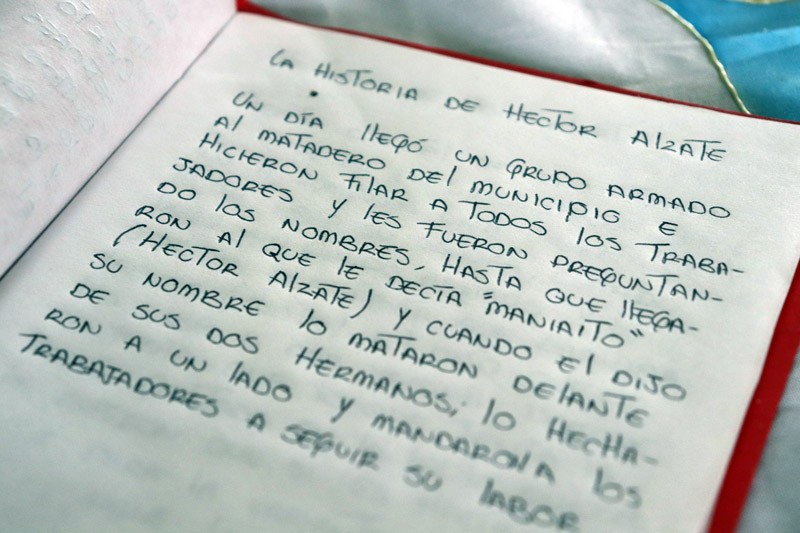 LA HISTORIA DE HECTOR AlZATE
UN DÍA llEGÓ UN GRUPO ARMADO
Al MATADERO DEl MUNICIPIO E
HICIERON FILAR A TODOS lOS TRABA-
JADORES Y lES FUERON PREGUNTAN-
DO lOS NOMBRES, HASTA QUE llEGA-
RON Al QUE lE DECÍA "MANIAITO"
(HECTOR AlZATE) Y CUANDO El DIJO
SU NOMBRE lO MATARON DElANTE
DE SUS DOS HERMANOS, lO HECHA-
RON A UN lADO Y MANDARON A lOS
TRABAJADORES A SEGUIR SU lABOR